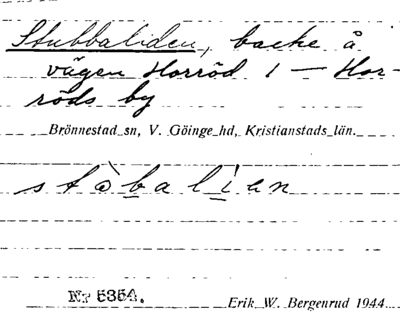 Stubbaliden, backe å
vägen Horröd 1 — Hor-
röds by
Brönnestad sn, V. Göinge hd, Kristianstads län.
stòbalíen
Nr 5354.
Erik W. Bergenrud 1944